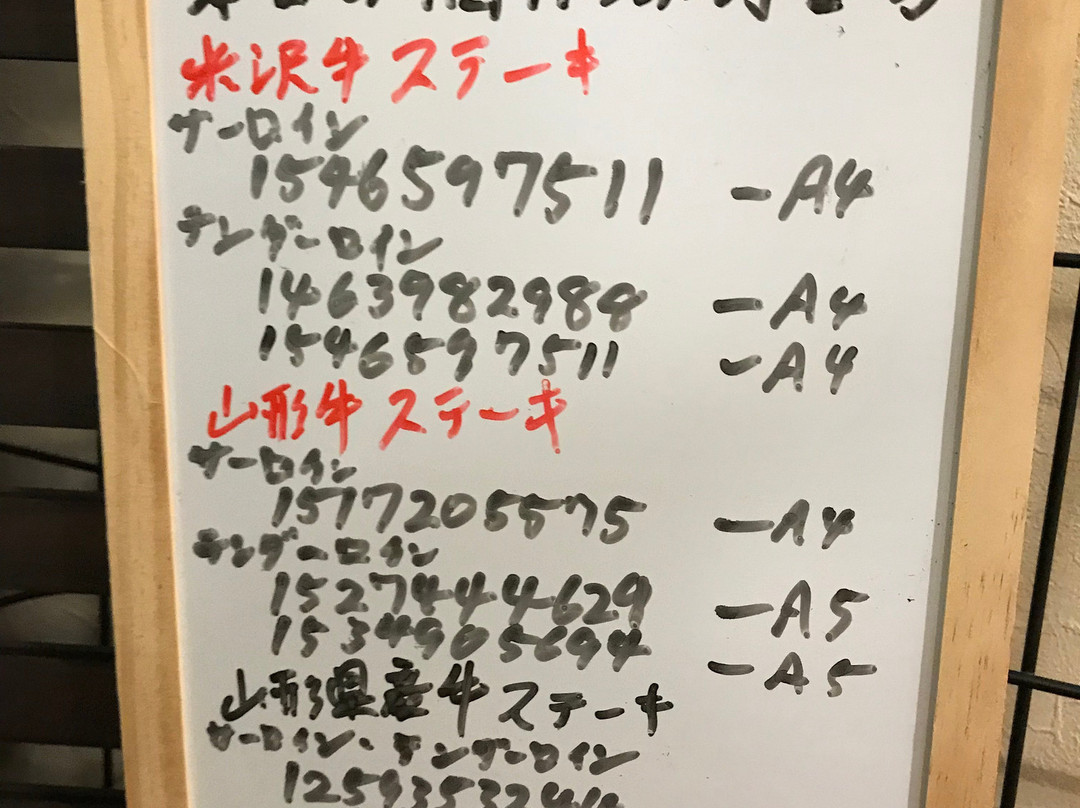 米沢牛ステーキ
サーロイン
1546597511 -A4
テンダーロイン
1463982988 -A4
1546597511 -A4
山形牛ステーキ
サーロイン
1517205575 -A4
テンダーロイン
1527444629 -A5
1534905694 -A5
山形県産牛ステーキ
サーロイン・テンダーロイン